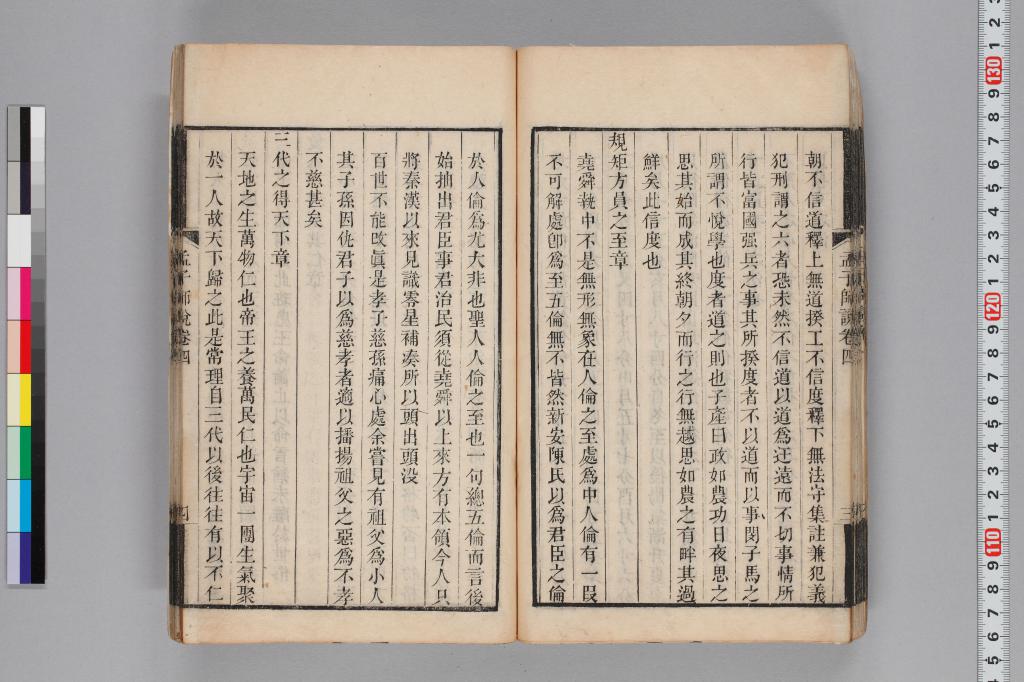 朝不信道釋上無道揆工不信度釋下無法守集註兼犯義
犯刑謂之六者恐未然不信道以道爲迂遠而不切事情所
行皆富國强兵之事其所揆度者不以道而以事閔子馬之
所謂不悅學也度者道之則也子產曰政如農功日夜思之
思其始而成其終朝夕而行之行無越思如農之有畔其過
鮮矣此信度也
規矩方員之至章
堯舜執中不是無形無象在人倫之至處爲中人倫有一段
不可解處卽爲至五倫無不皆然新安陳氏以爲君臣之倫
孟子師說卷四
於人倫爲尤大非也聖人人倫之至也一句總五倫而言後
始抽出君臣事君治民須從堯舜以上來方有本領今人只
將秦漢以來見識零星補湊所以頭出頭沒
百世不能改眞是孝子慈孫痛心處余嘗見有祖父爲小人
其子孫因仇君子以爲慈孝者適以播揚祖父之惡爲不孝
不慈甚矣
三代之得天下章
天地之生萬物仁也帝王之養萬民仁也宇宙一團生氣聚
於一人故天下歸之此是常理自三代以後往往有以不仁
孟子師說卷四
四